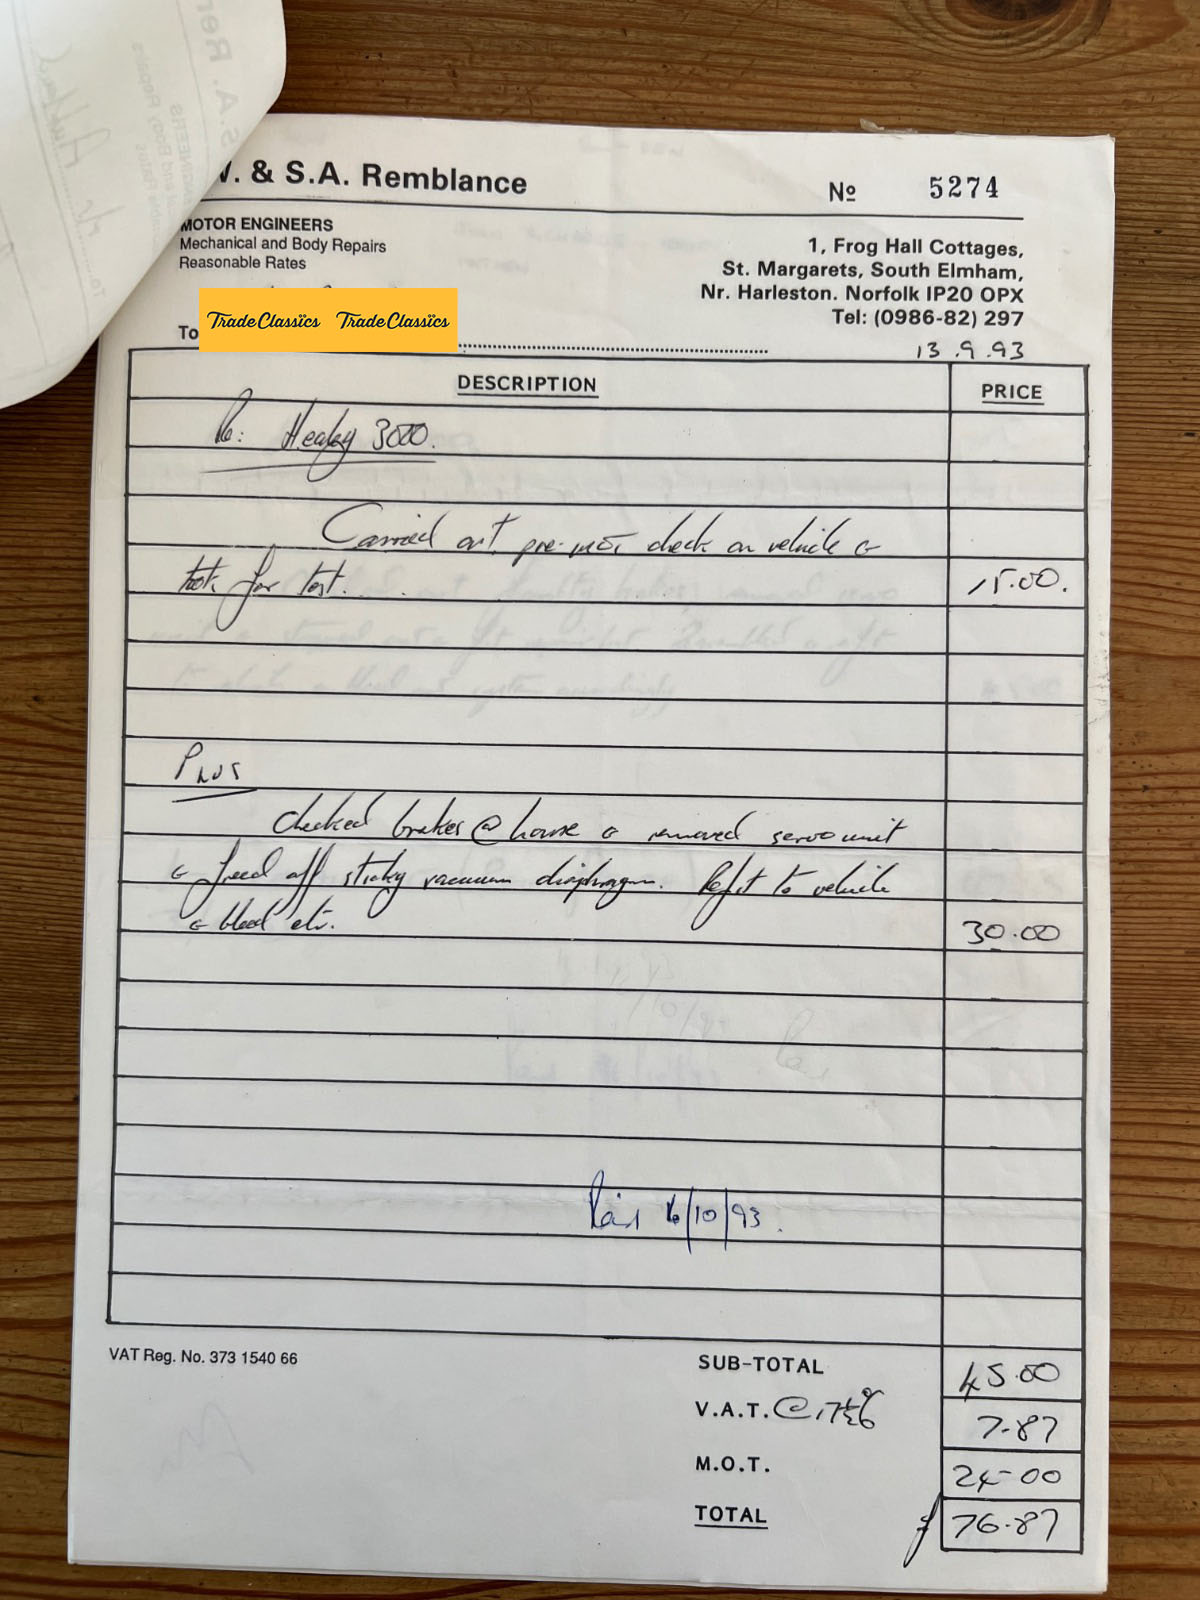 . & S.A. Remblance
Nº 5274
MOTOR ENGINEERS
Mechanical and Body Repairs
Reasonable Rates
1, Frog Hall Cottages,
St. Margarets, South Elmham,
Nr. Harleston. Norfolk IP20 OPX
Tel: (0986-82) 297
To
TradeClassics TradeClassics
13.9.93
DESCRIPTION PRICE
Re: Healey 3000.
Carried out pre-MOT check on vehicle &
took for test. 15.00.
Plus
Checked brakes @ house & removed servo unit
& freed off sticky vacuum diaphragm. Refit to vehicle
& bleed etc. 30.00
Paid 16/10/93.
VAT Reg. No. 373 1540 66
SUB-TOTAL 45.00
V.A.T. @ 17½% 7-87
M.O.T. 24-00
TOTAL £ 76-87